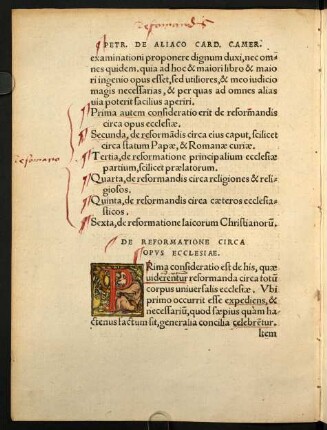 Reformandis
PETR. DE ALIACO CARD. CAMER.
examinationi proponere dignum duxi, nec om⸗
nes quidem, quia ad hoc & maiori libro & maio
ri ingenio opus esset, sed utiliores, & meo iudicio
magis necessarias, & per quas ad omnes alias
uia poterit facilius aperiri.
Prima autem consideratio erit de reformãdis
circa opus ecclesiæ.
Secunda, de reformãdis circa eius caput, scilicet
circa statum Papæ, & Romanæ curiæ.
Tertia, de reformatione principalium ecclesiæ
partium, scilicet prælatorum.
Quarta, de reformandis circa religiones & reli⸗
giosos.
Quinta, de reformandis circa cæteros ecclesia⸗
sticos.
Sexta, de reformatione laicorum Christianorũ.
DE REFORMATIONE CIRCA
OPVS ECCLESIAE.
PRima consideratio est de his, quæ
uiderentur reformanda circa totũ
corpus uniuersalis ecclesiæ. Vbi
primo occurrit esse expediens, &
necessariũ, quod sæpius quàm ha
ctenus factum sit, generalia concilia celebrẽtur.
Item